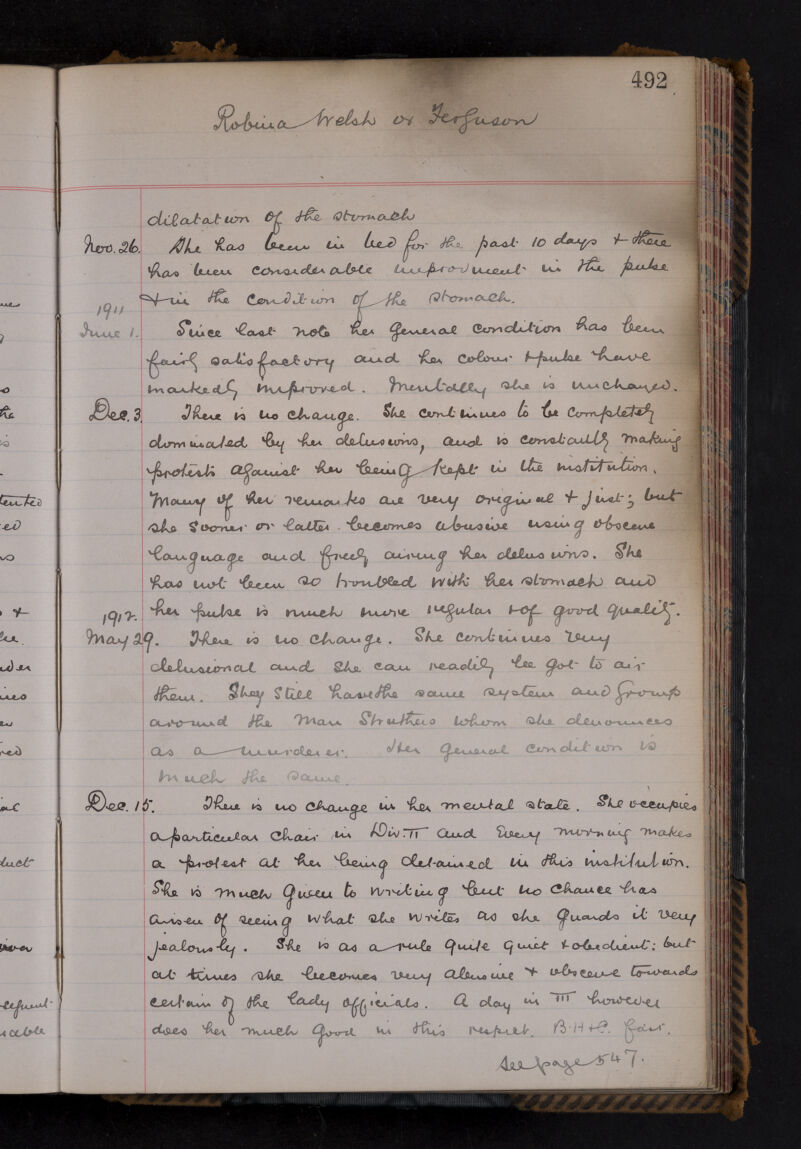 492
Robina Welsh or Ferguson
dilatation of the stomach
Nov. 26. She has been in bed for the past 10 days + there
has been considerable improvment in the pulse
+ in the condition of the stomach.
1911
June 1. Since last note her general condition has been
fairly satisfactory and her colour + pulse have
markedly improved. Mentally she is unchanged.
Dec. 3. There is no change. She continues to be completely
dominated by her delusions, and is constantly making
protests against her being kept in the institution.
Many of her remarks are very original + just; but
she sooner or latter becomes abusive using obscene
language and freely airing her delusions. She
has not been so troubled with her stomach and
1912. her pulse is much more regular + of good quality.
May 29. There is no change. She continues very
delusional and she can readily be got to air
them. They still have the same system and group
around the man Struthers whom she denounces
as a murderer. Her general condition is
much the same.
Dec. 15. There is no change in her mental state. She occupies
a particular chair in Div. II and every morning makes
a protest at her being detained in this institution.
She is much given to writing but no chance has
arisen of seeing what she writes as she guards it very
jealously. She is as a rule quite quiet + obedient; but
at times she becomes very abusive + obscene towards
certain of the lady officials. A day in III however
does her much good in this respect. B.H.+P. fair.
See page 547.